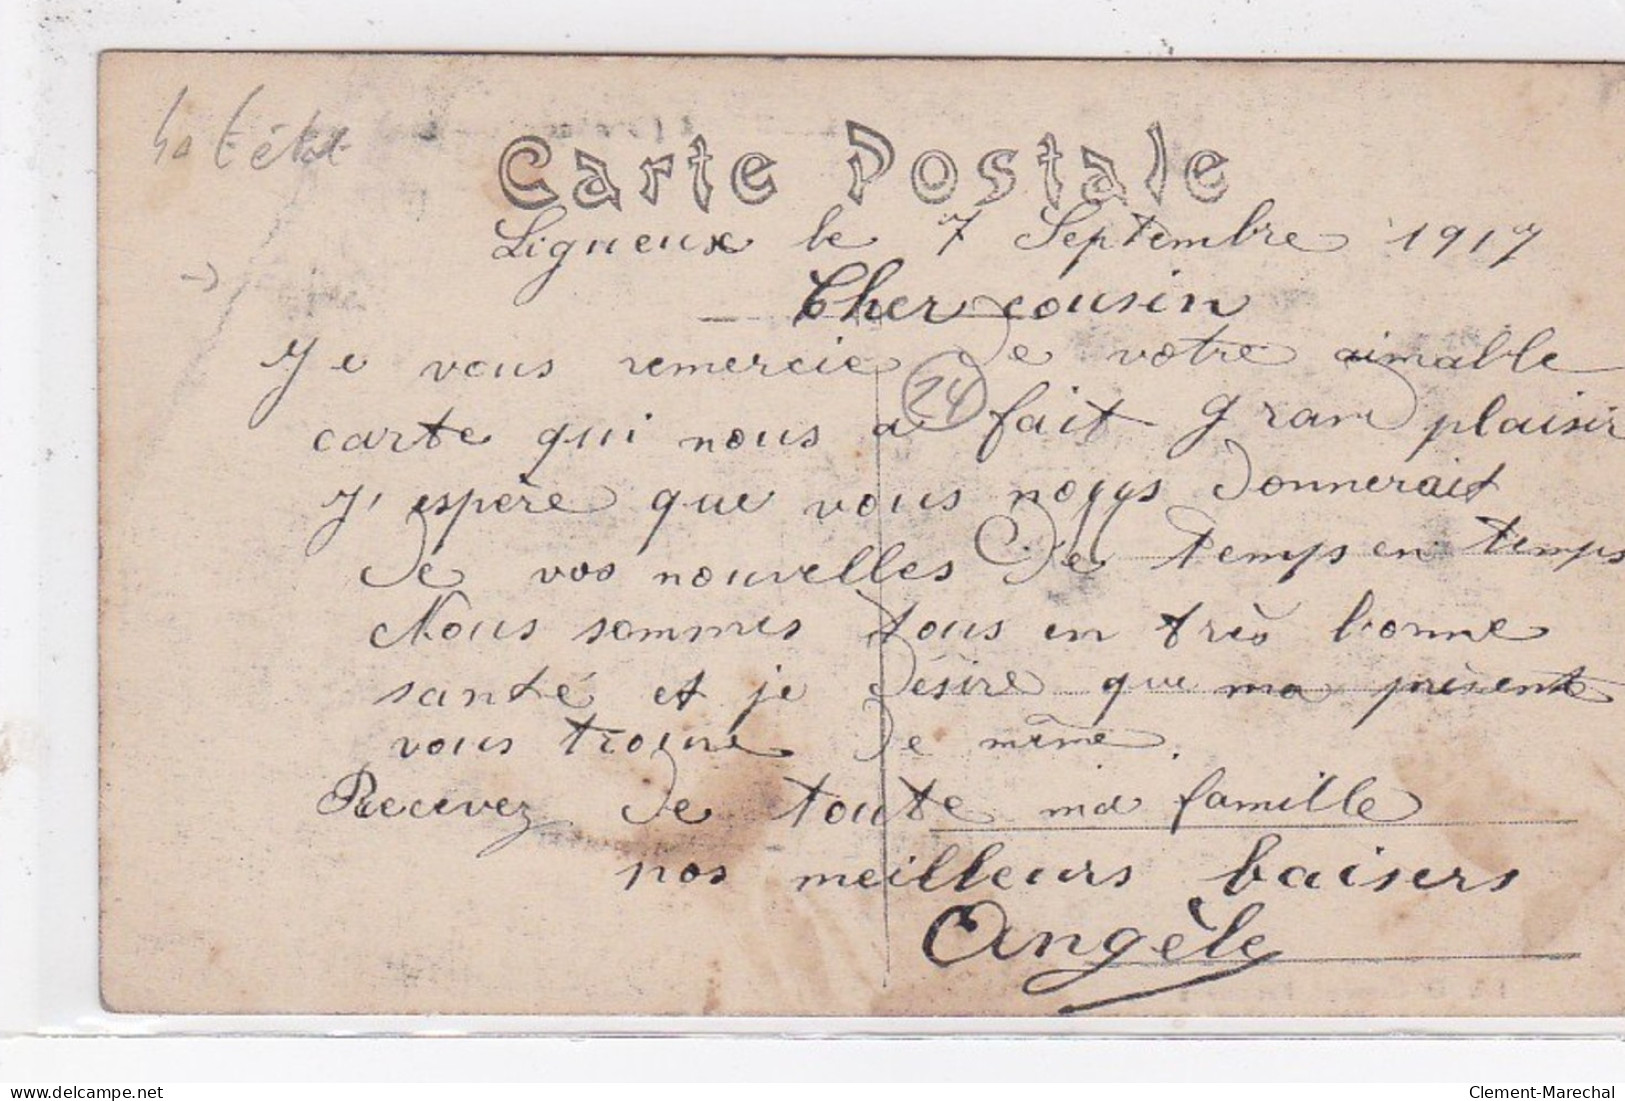 Carte Postale
Ligneux le 7 Septembre 1917
Cher cousin
Je vous remercie de votre aimable
24
carte qui nous a fait grand plaisir
J'espère que vous nous donnerait
de vos nouvelles de temps en temps
Nous sommes tous en très bonne
santé et je désire que ma présente
vous trouve de même.
Recevez de toute ma famille
nos meilleurs baisers
Angèle
delcampe.net
Clement-Marechal